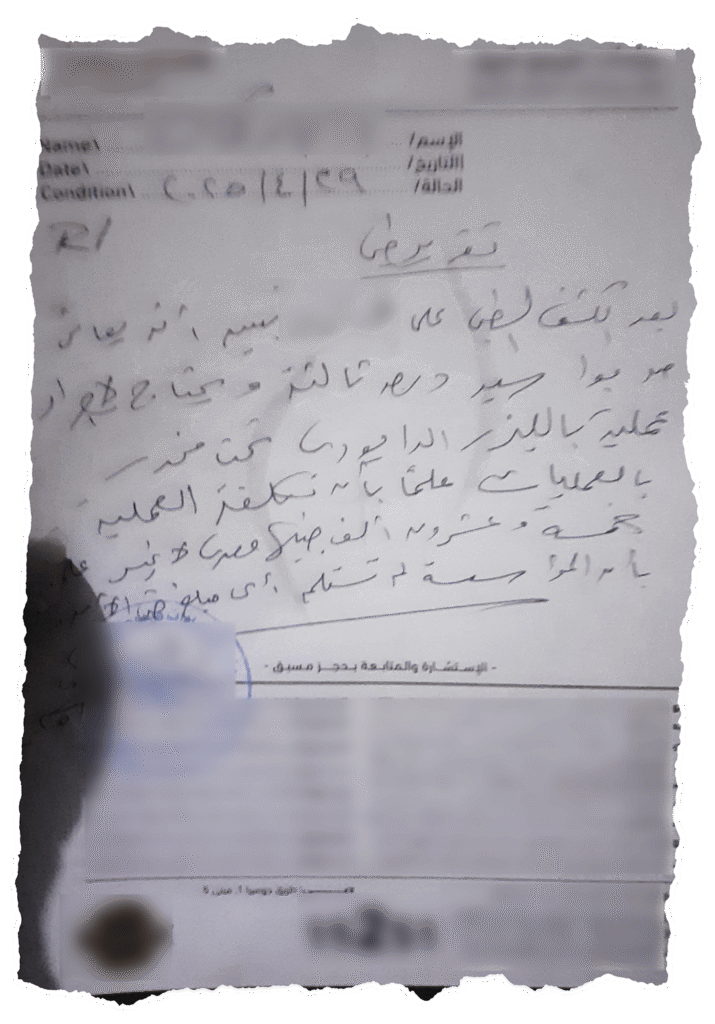 Name\ الإسم/
Date\ التاريخ/
Condition\ ٢٠٢٥/٤/٢٩ الحالة/
R/ تقرير طبي
بعد الكشف الطبي على تبين أنه يعانى
بواسير درجة ثالثة ويحتاج لاجراء
عملية بالليزر الدايودى تحت مخدر
بالعمليات علمًا بأن تكلفة العملية
خمسة وعشرون ألف جنيها مصريا لا غير
بأن المؤسسة لم تستلم أى مبلغ حتى الآن
- الإستشارة والمتابعة بحجز مسبق -